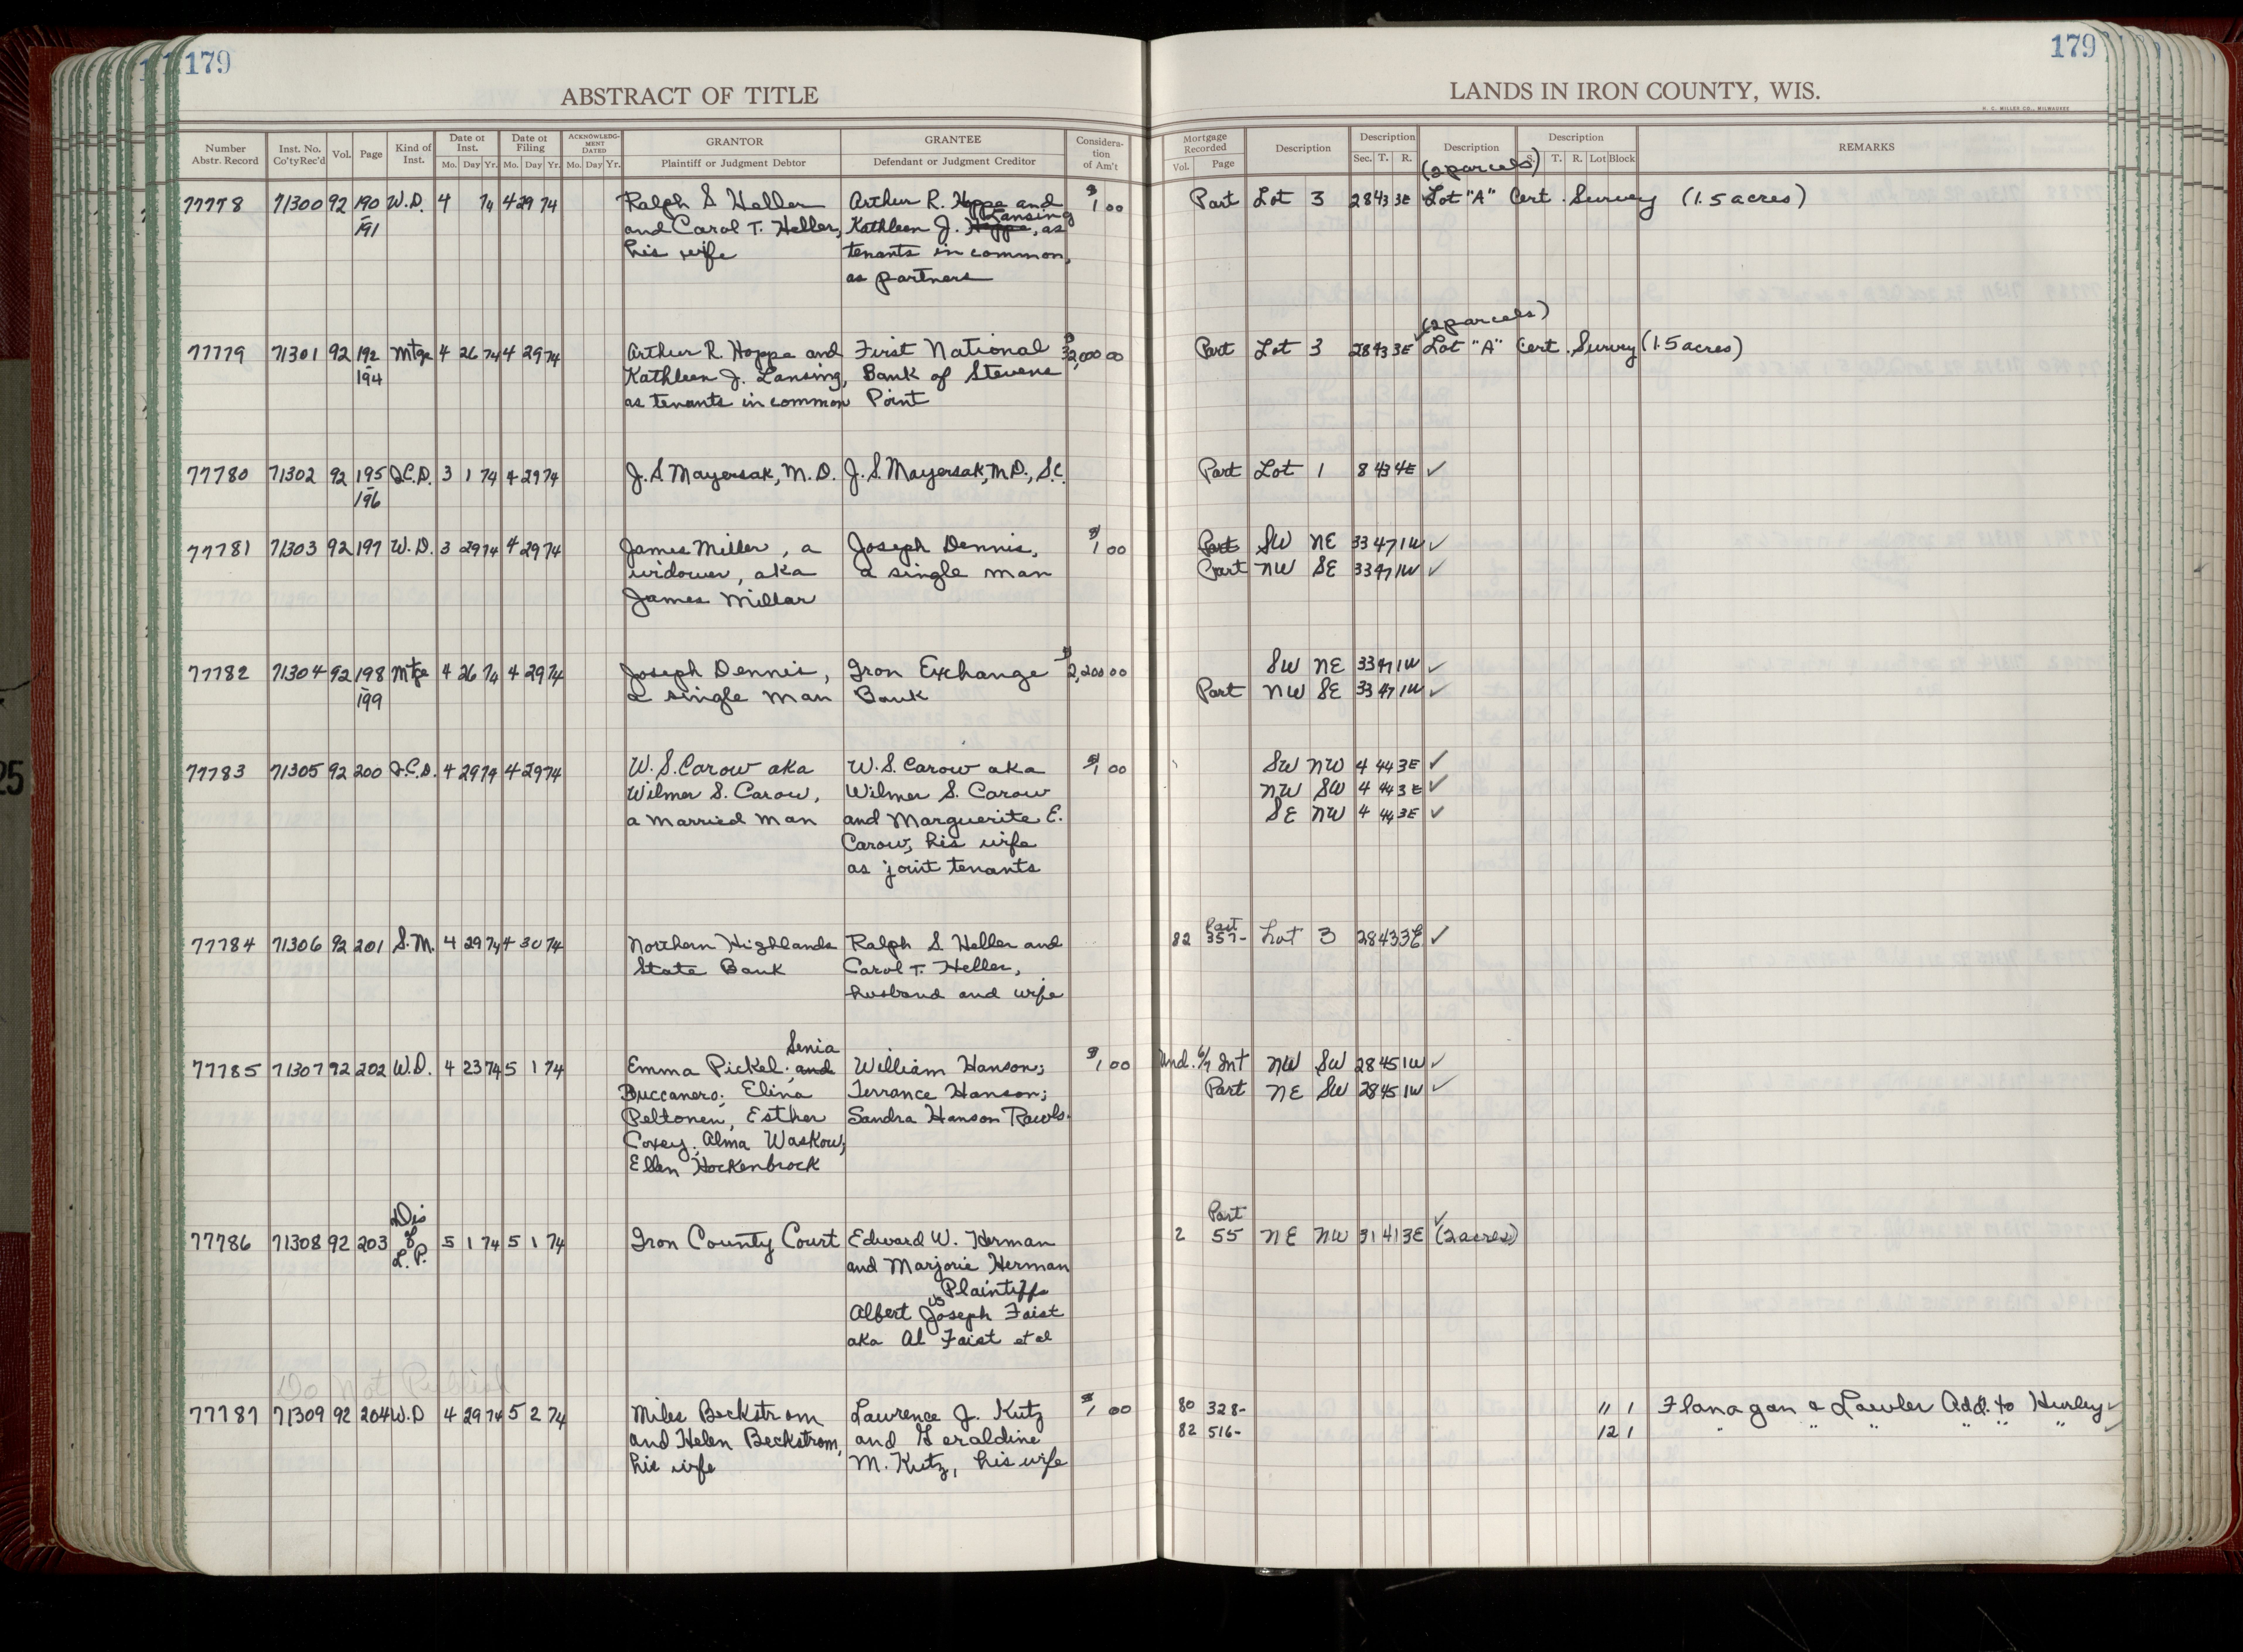 179
179
ABSTRACT OF TITLE
LANDS IN IRON COUNTY, WIS.
H. C. MILLER CO., MILWAUKEE
Number Abstr. Record | Inst. No. Co'ty Rec'd | Vol. | Page | Kind of Inst. | Date of Inst. Mo. Day Yr. | Date of Filing Mo. Day Yr. | ACKNOWLEDGMENT DATED Mo. Day Yr. | GRANTOR Plaintiff or Judgment Debtor | GRANTEE Defendant or Judgment Creditor | Consideration of Am't | Mortgage Recorded Vol. Page | Description | Description Sec. T. R. | Description | Description S. T. R. Lot Block | REMARKS
(2 parcels)
77778 71300 92 190 W.D. 4 74 4 29 74 Ralph S Heller Arthur R. Hoppe and $1 00 Part Lot 3 28 43 3E Lot "A" Cert. Survey (1.5 acres)
Lansing
191 and Carol T. Heller, Kathleen J. Hoppe, as
his wife tenants in common,
as partners
(2 parcels)
77779 71301 92 192 Mtge 4 26 74 4 29 74 Arthur R. Hoppe and First National $32,000 00 Part Lot 3 28 43 3E ✓ Lot "A" Cert. Survey (1.5 acres)
194 Kathleen J. Lansing, Bank of Stevens
as tenants in common Point
77780 71302 92 195 Q.C.D. 3 1 74 4 29 74 J. S Mayersak, M.D. J. S. Mayersak, M.D., S.C. Part Lot 1 8 43 4E ✓
196
77781 71303 92 197 W.D. 3 29 74 4 29 74 James Miller, a Joseph Dennis, $1 00 Part SW NE 33 47 1W ✓
widower, aka a single man Part NW SE 33 47 1W ✓
James Millar
77782 71304 92 198 Mtge 4 26 74 4 29 74 Joseph Dennis, Iron Exchange $2,200 00 SW NE 33 47 1W ✓
199 a single man Bank Part NW SE 33 47 1W ✓
77783 71305 92 200 Q.C.D. 4 29 74 4 29 74 W. S. Carow aka W. S. Carow aka $1 00 SW NW 4 44 3E ✓
Wilmer S. Carow, Wilmer S. Carow NW SW 4 44 3E ✓
a married man and Marguerite E. SE NW 4 44 3E ✓
Carow, his wife
as joint tenants
Part
77784 71306 92 201 S.M. 4 29 74 4 30 74 Northern Highlands Ralph S Heller and 82 357- Lot 3 28 43 3E ✓
State Bank Carol T. Heller,
husband and wife
Senia
77785 71307 92 202 W.D. 4 23 74 5 1 74 Emma Pickel; and William Hanson; $1 00 Und. 6/7 Int NW SW 28 45 1W ✓
Buccanero; Elina Terrance Hanson; Part NE SW 28 45 1W ✓
Peltonen, Esther Sandra Hanson Rawls.
Coxey; Alma Waskow;
Ellen Hockenbrock
Dis Part
77786 71308 92 203 of L.P. 5 1 74 5 1 74 Iron County Court Edward W. Herman 2 55 NE NW 31 41 3E ✓ (2 acres)
and Marjorie Herman
Plaintiffs
vs
Albert Joseph Faist
aka Al Faist et al
Do Not Publish
77787 71309 92 204 W.D 4 29 74 5 2 74 Miles Beckstrom Lawrence J. Kutz $1 00 80 328- 11 1 Flanagan & Lawler Add. to Hurley ✓
and Helen Beckstrom, and Geraldine 82 516- 12 1 " " " " " " ✓
his wife M. Kutz, his wife